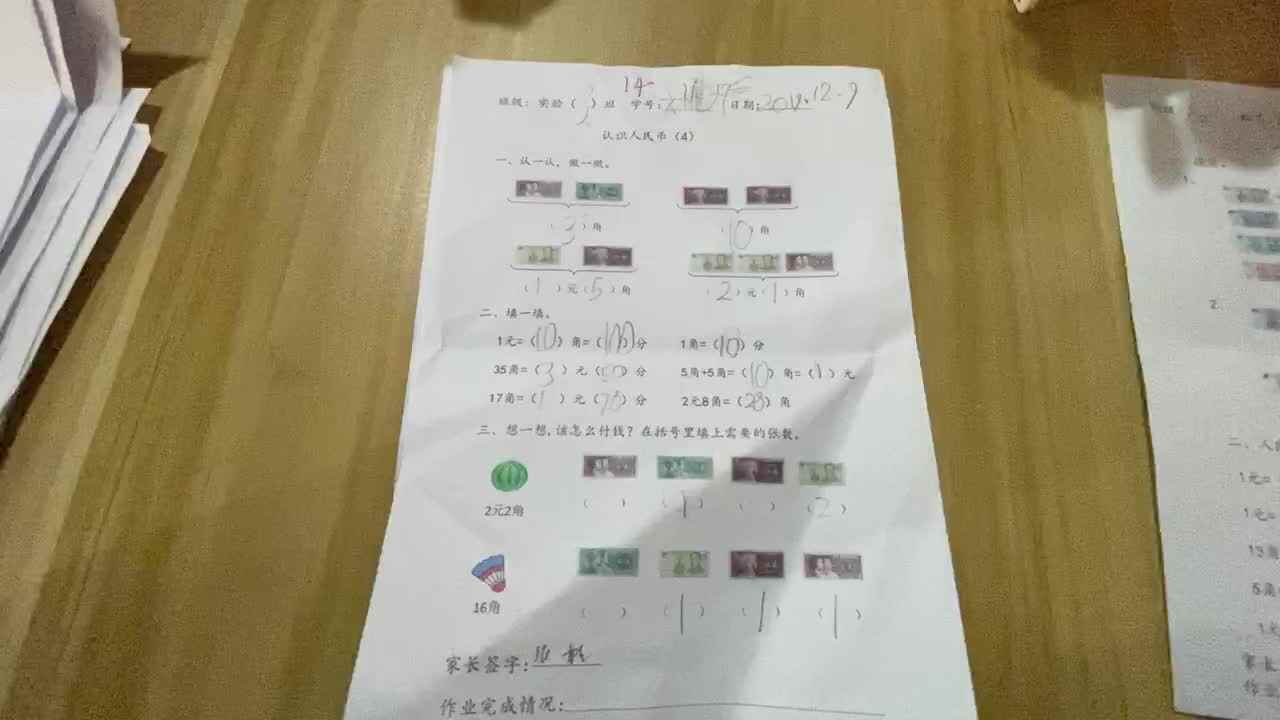 14
班级：实验（3）班 学号： 日期：2019.12.9
认识人民币（4）
一、认一认，做一做。
（3）角 （10）角
（1）元（5）角 （2）元（1）角
二、填一填。
1元=（10）角=（100）分 1角=（10）分
35角=（3）元（50）分 5角+5角=（10）角=（1）元
17角=（1）元（70）分 2元8角=（28）角
三、想一想，该怎么付钱？在括号里填上需要的张数。
2元2角 （ ） （1） （ ） （2）
16角 （ ） （1） （1） （1）
家长签字：
作业完成情况：
1.
2.
二、人
1元=
1元=
13
5角
1
家长
作业